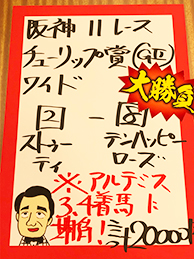 阪神11レース
チューリップ賞(GII)
ワイド
大勝負
2-8
ストゥー
ティ
テンハッピー
ローズ
※アルテミス
3.4着馬に
注目!
計2000